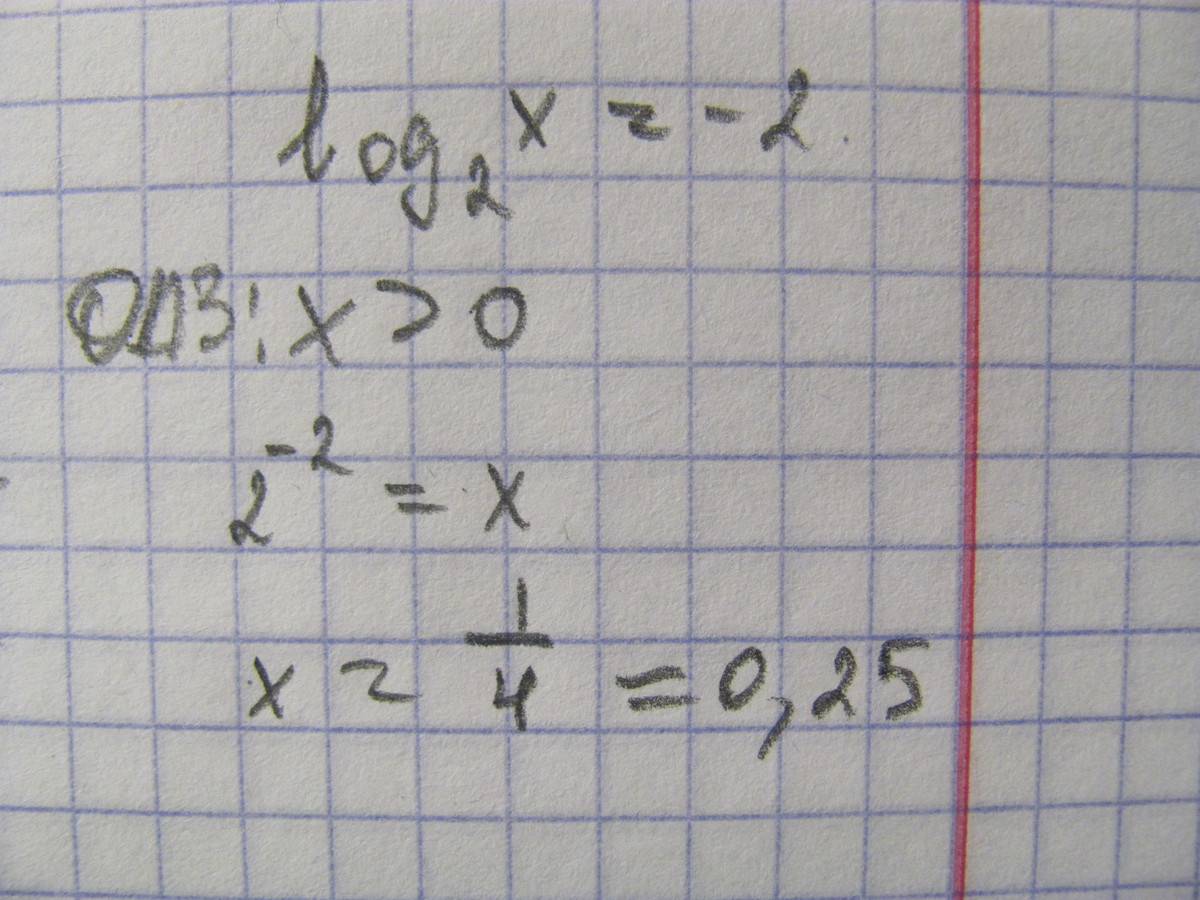 log₂ x = -2.
ОДЗ: x > 0
2⁻² = x
x = 1/4 = 0,25